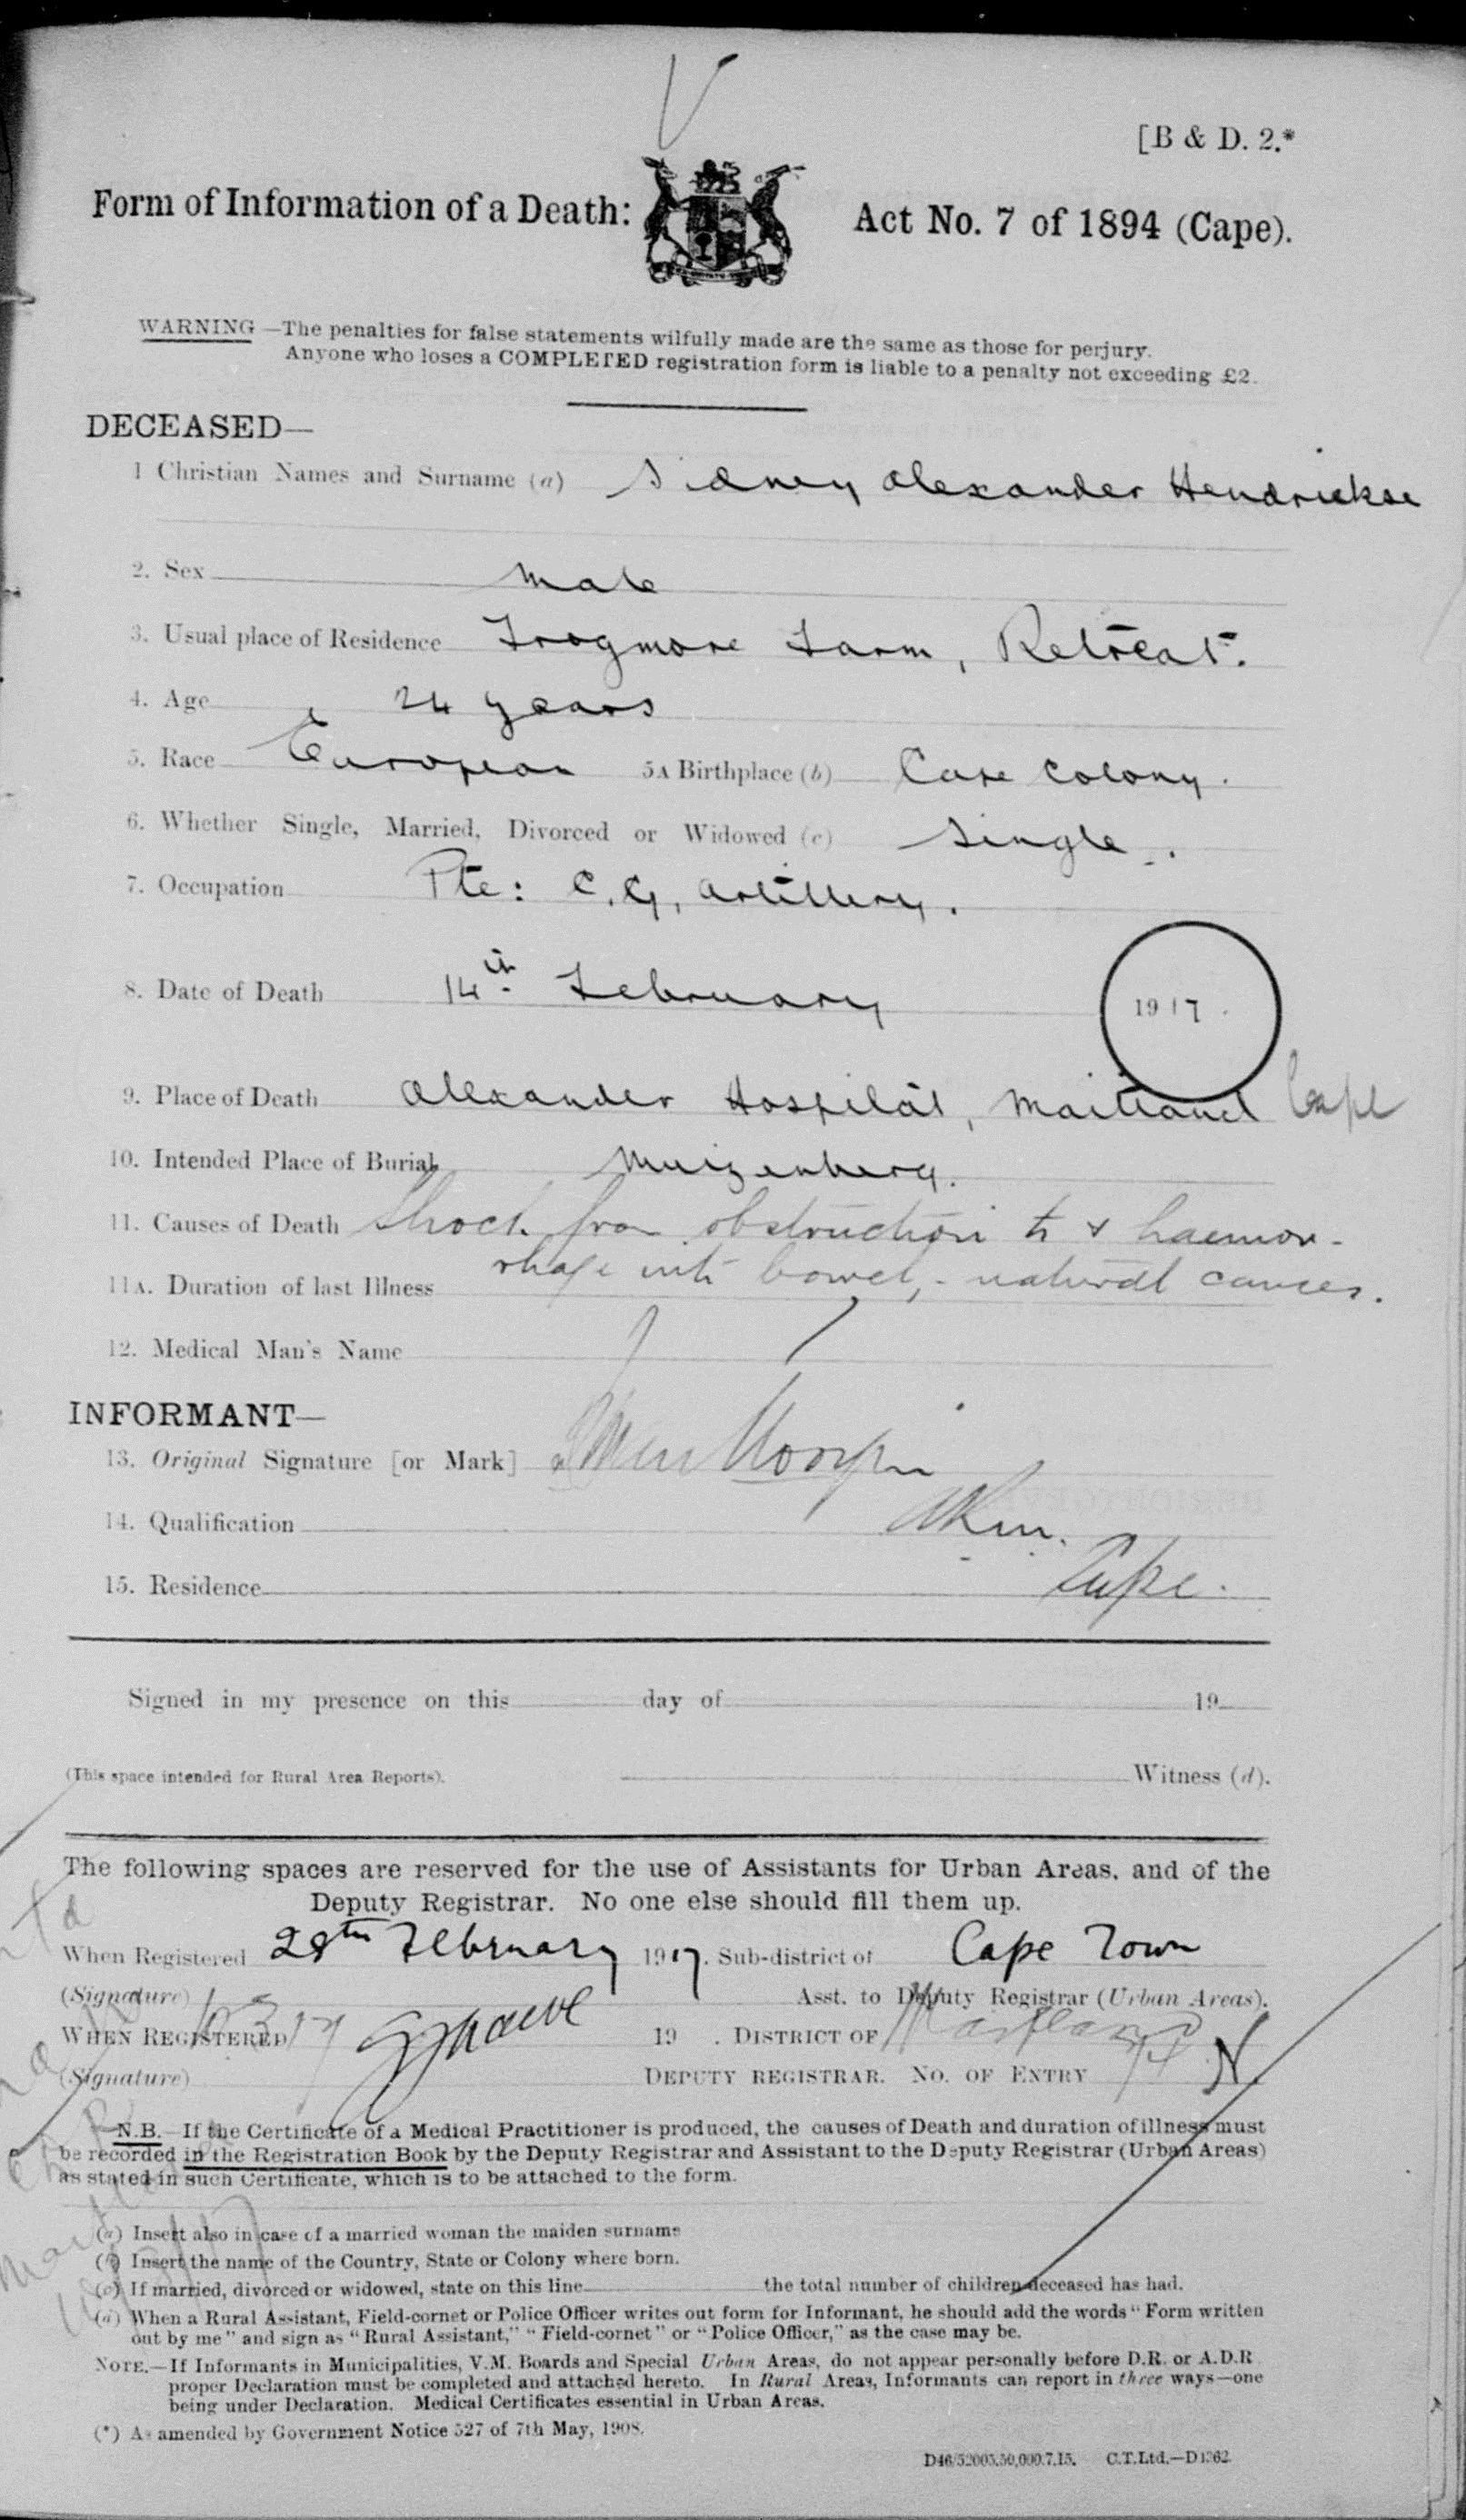 [B & D. 2.*
Form of Information of a Death: Act No. 7 of 1894 (Cape).
WARNING —The penalties for false statements wilfully made are the same as those for perjury.
Anyone who loses a COMPLETED registration form is liable to a penalty not exceeding £2.
DECEASED—
1 Christian Names and Surname (a) Sidney Alexander Hendrickse
2. Sex Male
3. Usual place of Residence Frogmore Farm, Retreat.
4. Age 24 years
5. Race European 5A Birthplace (b) Cape Colony.
6. Whether Single, Married, Divorced or Widowed (c) Single.
7. Occupation Pte: C.G. Artillery.
8. Date of Death 14th February 1917.
9. Place of Death Alexander Hospital, Maitland Cape
10. Intended Place of Burial Muizenberg.
11. Causes of Death Shock from obstruction to & haemor-
rhage into bowel, - natural causes.
11A. Duration of last Illness
12. Medical Man's Name
INFORMANT—
13. Original Signature [or Mark]
14. Qualification
15. Residence Cape.
Signed in my presence on this day of 19
(This space intended for Rural Area Reports). Witness (d).
The following spaces are reserved for the use of Assistants for Urban Areas, and of the
Deputy Registrar. No one else should fill them up.
When Registered 28th February 1917. Sub-district of Cape Town
(Signature) Asst. to Deputy Registrar (Urban Areas).
WHEN REGISTERED 19 . DISTRICT OF Maitland
(Signature) DEPUTY REGISTRAR. NO. OF ENTRY
N.B.—If the Certificate of a Medical Practitioner is produced, the causes of Death and duration of illness must
be recorded in the Registration Book by the Deputy Registrar and Assistant to the Deputy Registrar (Urban Areas)
as stated in such Certificate, which is to be attached to the form.
(a) Insert also in case of a married woman the maiden surname
(b) Insert the name of the Country, State or Colony where born.
(c) If married, divorced or widowed, state on this line the total number of children deceased has had.
(d) When a Rural Assistant, Field-cornet or Police Officer writes out form for Informant, he should add the words "Form written
out by me" and sign as "Rural Assistant," "Field-cornet" or "Police Officer," as the case may be.
NOTE.—If Informants in Municipalities, V.M. Boards and Special Urban Areas, do not appear personally before D.R. or A.D.R.
proper Declaration must be completed and attached hereto. In Rural Areas, Informants can report in three ways—one
being under Declaration. Medical Certificates essential in Urban Areas.
(*) As amended by Government Notice 527 of 7th May, 1908.
D46/52005.50,000.7.15. C.T.Ltd.—D1362